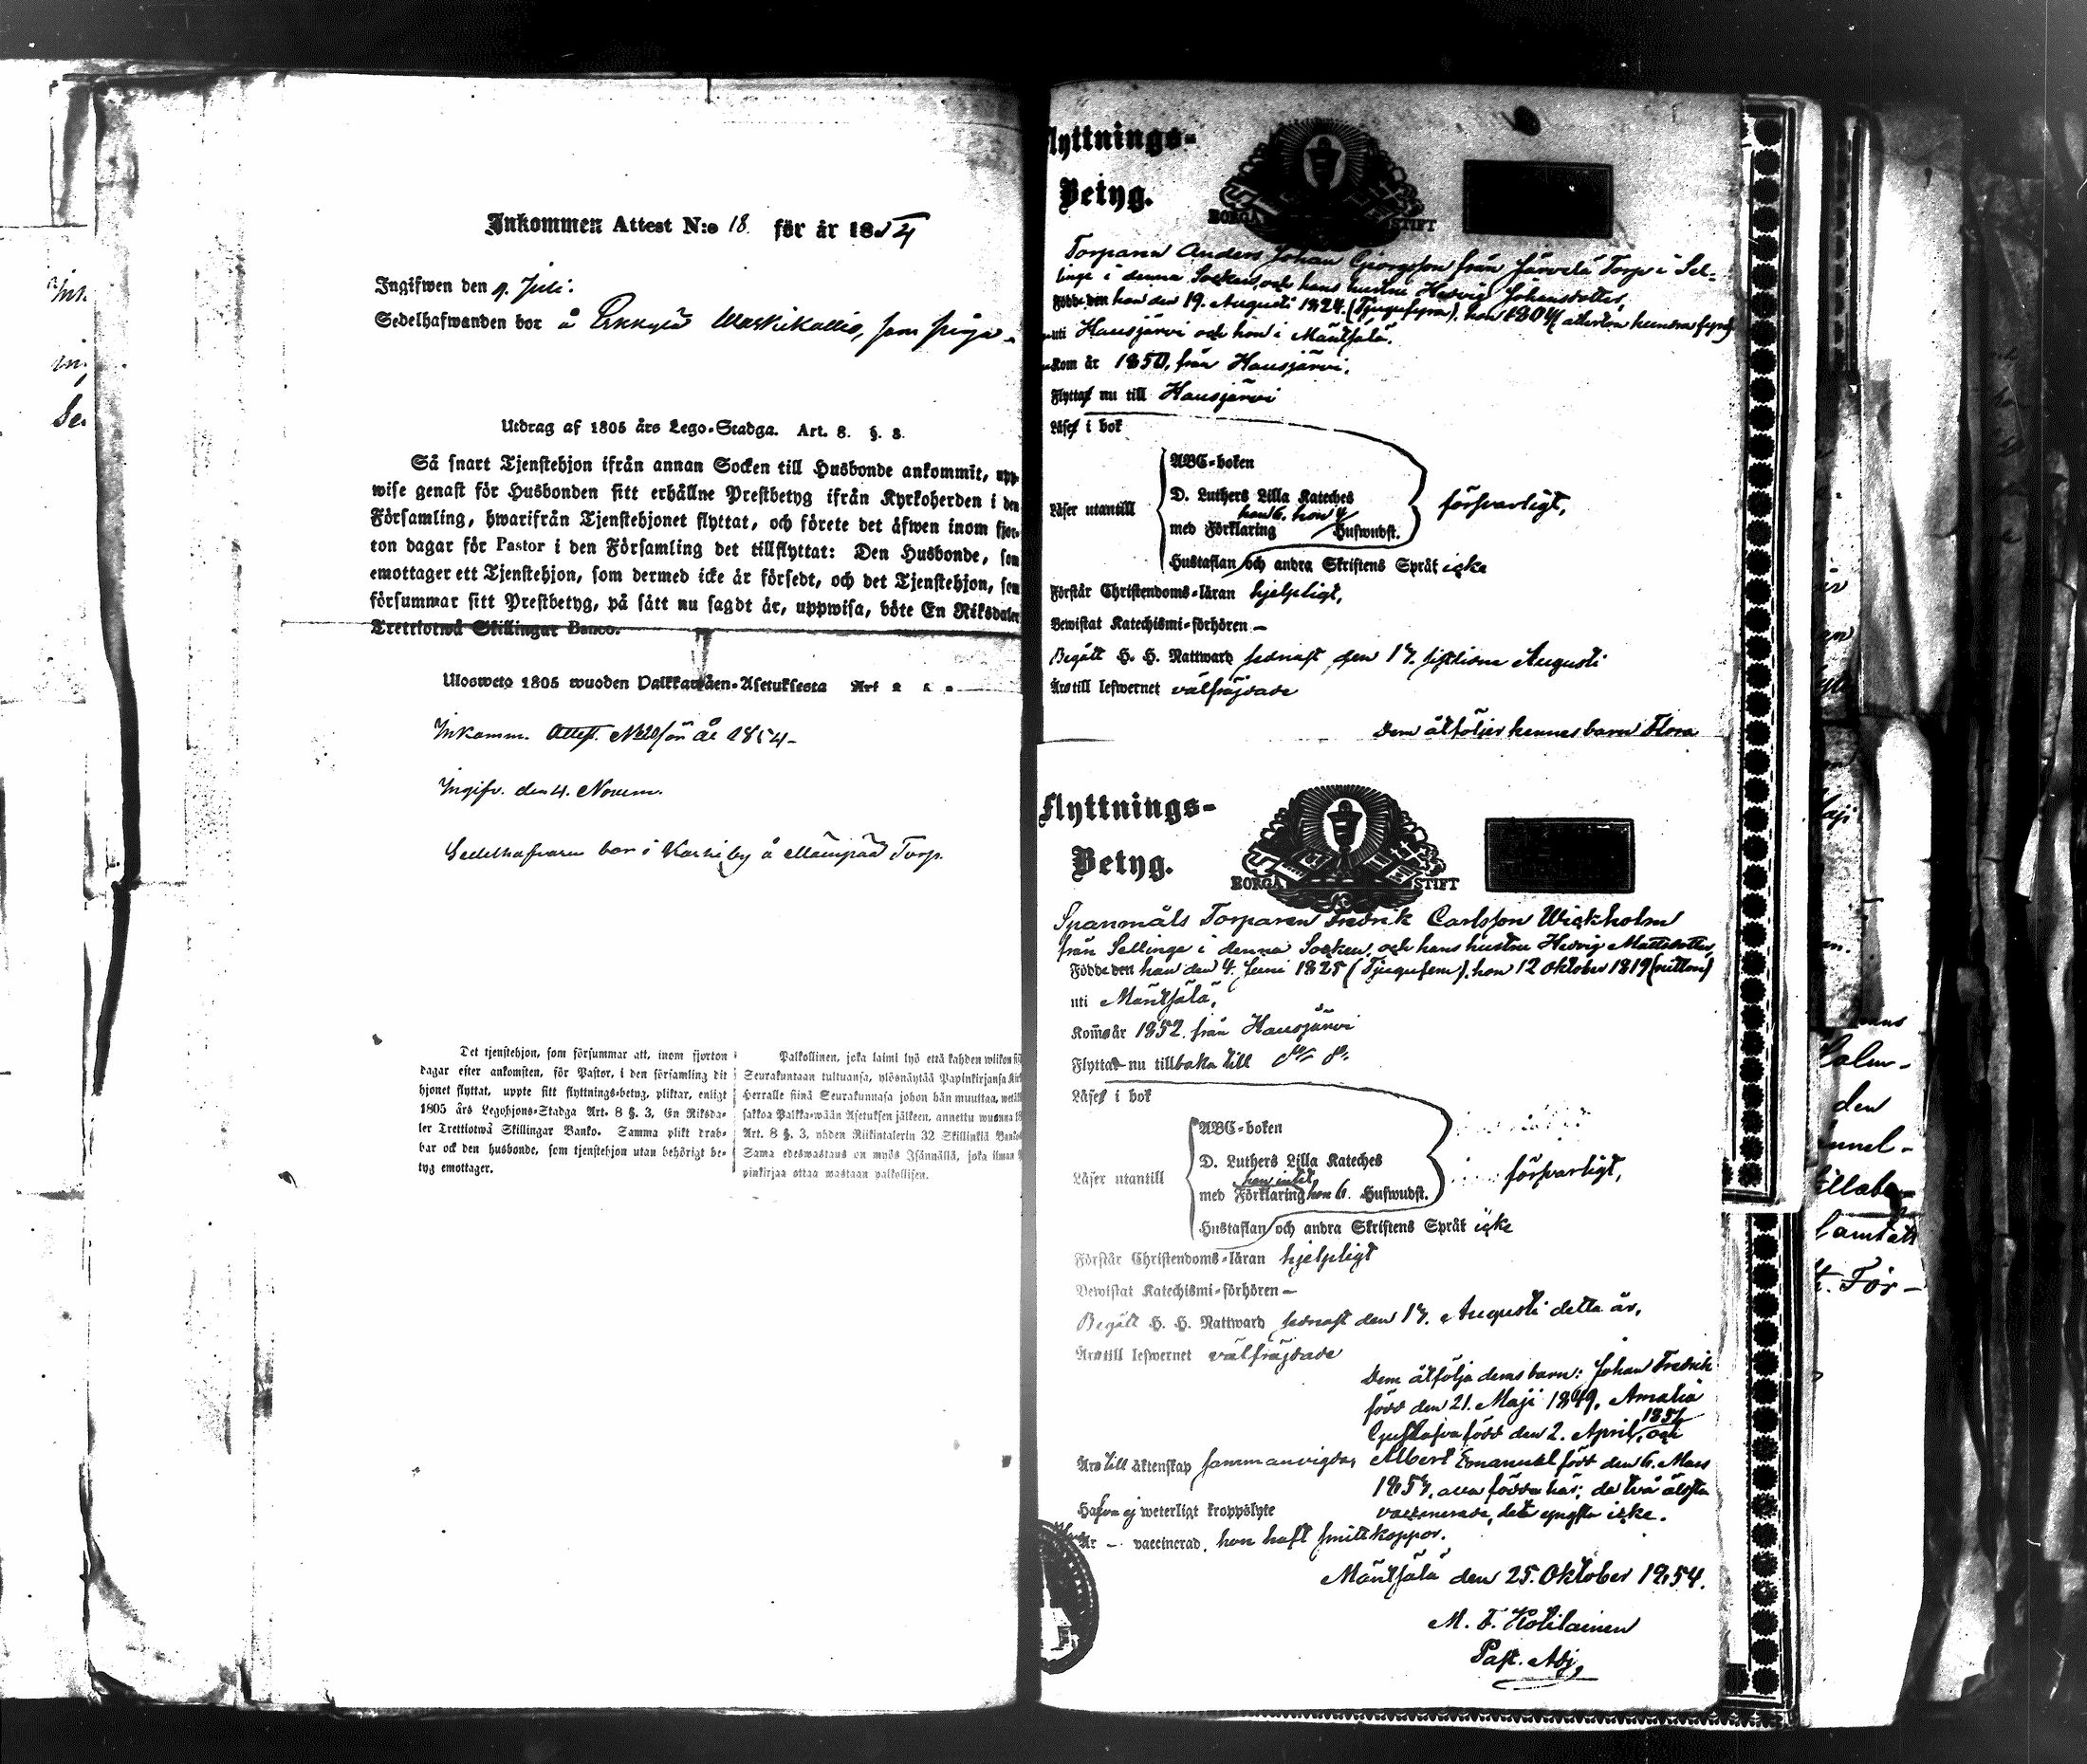 Inkommen Attest N:o 18. för år 1854
Ingifwen den 9. Juli.
Sedelhafwanden bor å Erkkylä Waskikallio, som piga.
Utdrag af 1805 års Lego-Stadga. Art. 8. §. 3.
Så snart Tjenstehjon ifrån annan Socken till Husbonde ankommit, upp-
wise genast för Husbonden sitt erhållne Prestbetyg ifrån Kyrkoherden i den
Församling, hwarifrån Tjenstehjonet flyttat, och förete det äfwen inom fjor-
ton dagar för Pastor i den Församling det tillflyttat: Den Husbonde, som
emottager ett Tjenstehjon, som dermed icke är försedt, och det Tjenstehjon, som
försummar sitt Prestbetyg, på sätt nu sagdt är, uppwisa, böte En Riksdaler
Trettiotwå Skillingar Banco.
Ulosweto 1805 wuoden Palkkawäen-Asetuksesta Art
Inkomm. Attest. No 20 för år 1854-
Ingifv. den 4. Novem.
Sedelhafvaren bor i Karhi by å Mäenpää Torp.
Det tjenstehjon, som försummar att, inom fjorton
dagar efter ankomsten, för Pastor, i den församling dit
hjonet flyttat, uppte sitt flyttnings-betyg, pliktar, enligt
1805 års Legohjons-Stadga Art. 8 §. 3, En Riksda-
ler Trettiotwå Skillingar Banko. Samma plikt drab-
bar ock den husbonde, som tjenstehjon utan behörigt be-
tyg emottager.
Palkollinen, joka laimi lyö että kahden wiikon
Seurakuntaan tultuansa, ylösnäytää Papinkirjansa
Herralle siinä Seurakunnasa johon hän muuttaa,
sakkoa Palkka-wään Asetuksen jälkeen, annettu wuonna
Art. 8 §. 3, yhden Riikintalerin 32 Skillinkiä
Sama edeswastaus on myös Isännällä, joka ilman
pinkirjaa ottaa wastaan palkollisen.
Flyttnings-
Betyg.
BORGÅ STIFT
Torparen Anders Johan Georgsson från Järvelä Torp i Sel-
linge i denna Socken, och hans hustru Hedvig Johansdotter,
Födde den han den 19. Augusti 1824. (Tjugufyra), hon 1804 (adertonhundrafyra)
uti Hausjärvi och hon i Mäntsälä.
Kom år 1850, från Hausjärvi.
Flyttas nu till Hausjärvi
Läser i bok
Läser utantill
ABC-boken
D. Luthers Lilla Kateches
han 6. hon 4
med Förklaring Hufwudst.
försvarligt,
Hustaflan och andra Skriftens Språk icke
Förstår Christendoms-läran hjelpligt,
Bewistat Katechismi-förhören —
Begått H. H. Nattward sednast den 17. sistlidne Augusti
Äro till lefwernet välfräjdade
Dem åtföljer hennes barn Flora
Flyttnings-
Betyg.
BORGÅ STIFT
Spanmåls Torparen Fredrik Carlsson Wickholm
från Sellinge i denna Socken, och hans hustru Hedvig Mattsdotter,
Födde den han den 4. Juni 1825 (Tjugufem), hon 12 Oktober 1819 (nitton)
uti Mäntsälä,
Kom år 1852. från Hausjärvi
Flyttas nu tillbaka till
Läser i bok
Läser utantill
ABC-boken
D. Luthers Lilla Kateches
han intet
med Förklaring hon 6. Hufwudst.
försvarligt,
Hustaflan och andra Skriftens Språk icke
Förstår Christendoms-läran hjelpligt
Bewistat Katechismi-förhören —
Begått H. H. Nattward sednast den 17. Augusti detta år,
Äro till lefwernet välfräjdade
Dem åtfölja deras barn: Johan Fredrik
född den 21. Maji 1849, Amalia
Gustafva född den 2. April 1851, och
Äro till äktenskap sammanvigde, Albert Emanuel född den 6. Mars
185, alla födda här; de två äldsta
Hafva ej weterligt kroppslyte vaccinerade, det yngsta icke.
Är — vaccinerad, hon haft smittkoppor.
Mäntsälä den 25. Oktober 1854.
M. F. Kotilainen
Past. Adj.